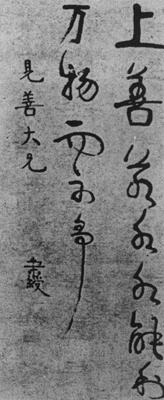 上善若水水能利
万物而不争
見善大兄